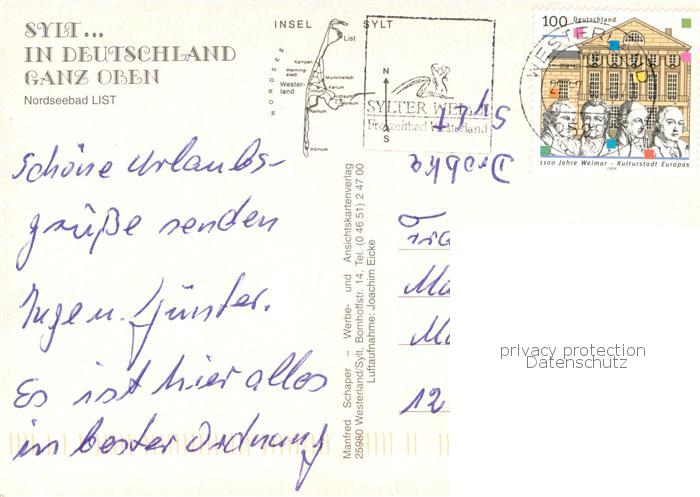 SYLT...
IN DEUTSCHLAND
GANZ OBEN
Nordseebad LIST
INSEL SYLT
NORDSEE
List
Kampen
Westerland
Keitum
Rantum
Hörnum
N
S
SYLTER WELLE
Freizeitbad Westerland
WESTERL
100 Deutschland
1100 Jahre Weimar - Kulturstadt Europas
1999
Schöne Urlaubs-
grüße senden
Inge u. Günter.
Es ist hier alles
in bester Ordnung
Manfred Schaper – Werbe- und Ansichtskartenverlag
25980 Westerland/Sylt, Bomhoffstr. 14, Tel. (0 46 51) 2 47 00
Luftaufnahme: Joachim Eicke
Sylt
12
privacy protection
Datenschutz